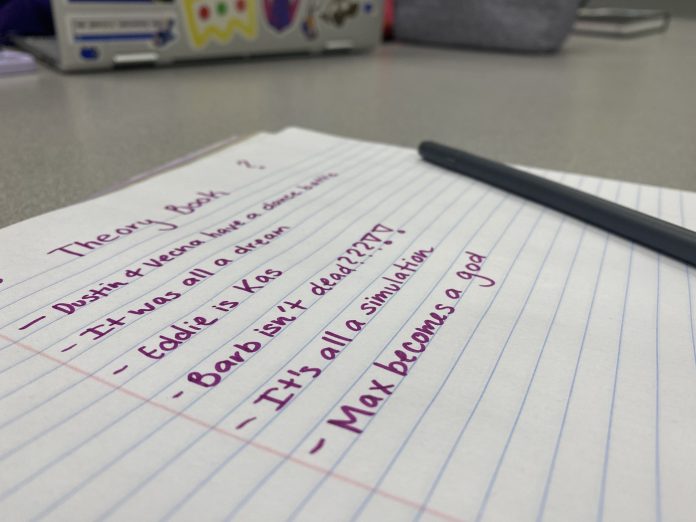 Theory Book ?
- Dustin & Vecna have a dance battle
- It was all a dream
- Eddie is Kas
- Barb isn't dead???!!
- It's all a simulation
- Max becomes a god